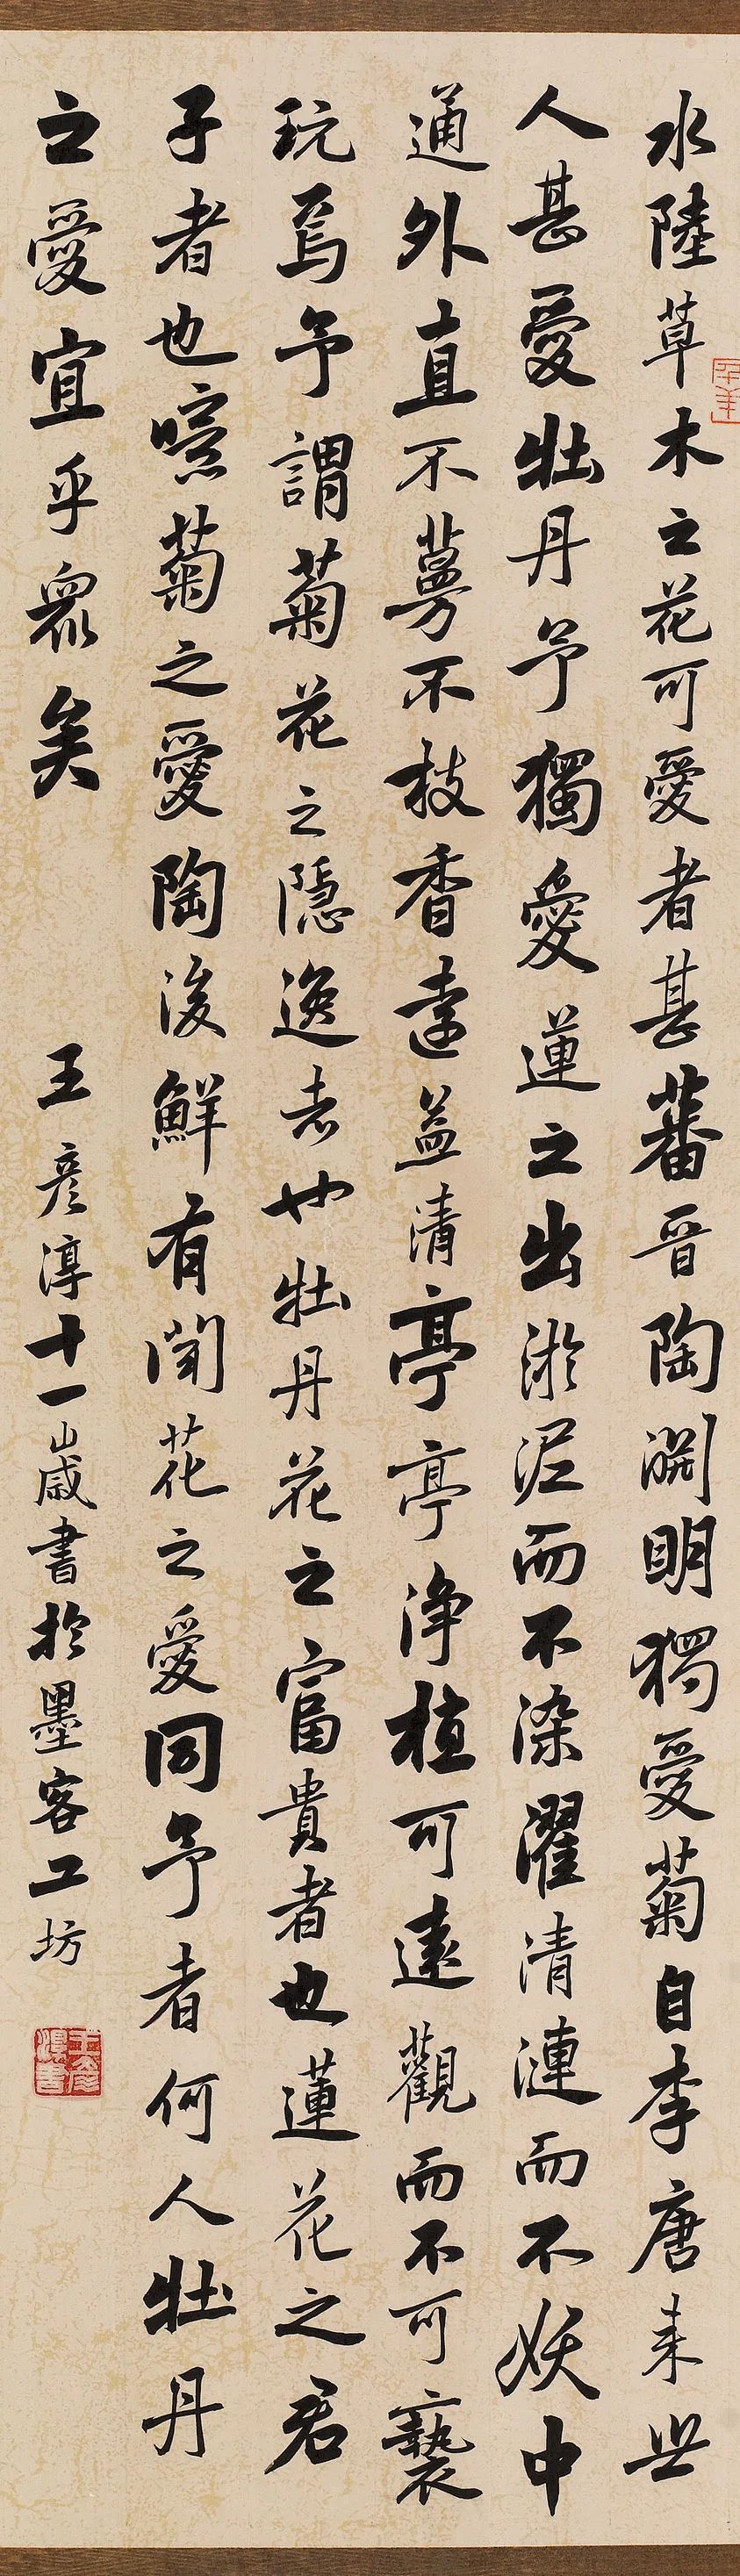 水陸草木之花可愛者甚蕃晉陶淵明獨愛菊自李唐来世
人甚愛牡丹予獨愛蓮之出淤泥而不染濯清漣而不妖中
通外直不蔓不枝香遠益清亭亭浄植可遠觀而不可褻
玩焉予謂菊花之隱逸者也牡丹花之富貴者也蓮花之君
子者也噫菊之愛陶後鮮有聞花之愛同予者何人牡丹
之愛宜乎衆矣
王彦淳十一歲書於墨客工坊